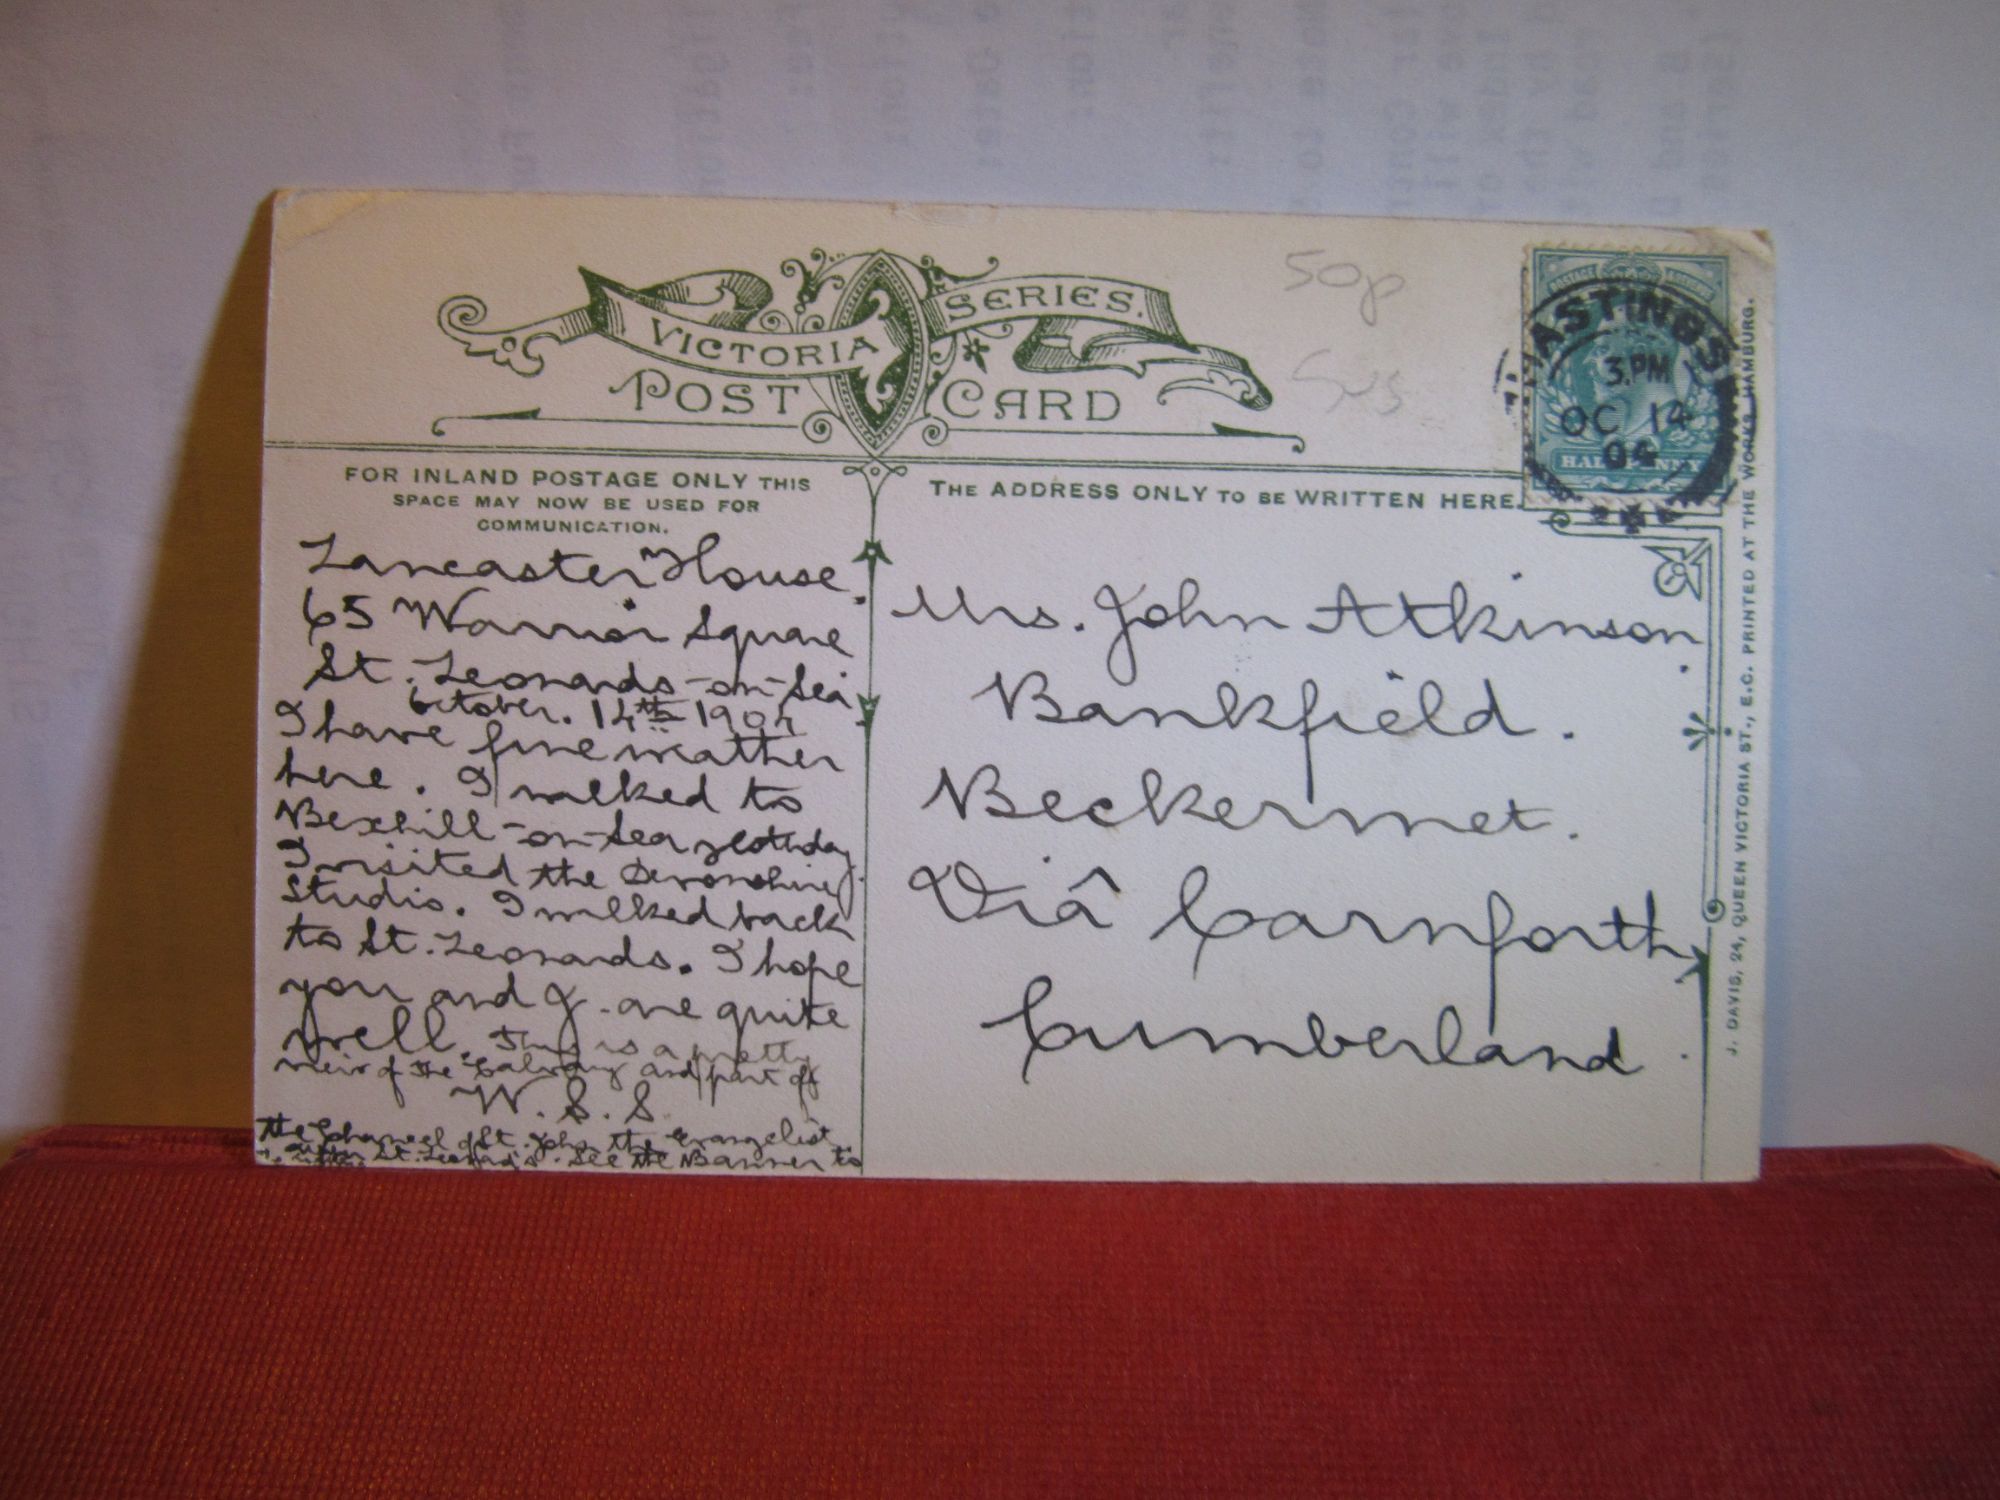 VICTORIA SERIES.
POST CARD
50p
HASTINGS
3.PM
OC 14
04
HALFPENNY
FOR INLAND POSTAGE ONLY THIS
SPACE MAY NOW BE USED FOR
COMMUNICATION.
Lancaster House.
65 Warrior Square
St. Leonards-on-Sea.
October. 14th 1904
I have fine weather
here. I walked to
Bexhill-on-Sea yesterday.
I visited the Devonshire
Studio. I walked back
to St. Leonards. I hope
you and J. are quite
well. This is a pretty
view of the Calvary and part of
W. S. S.
the Chancel of St. John the Evangelist
St. Leonards. See the Banner to
THE ADDRESS ONLY TO BE WRITTEN HERE.
Mrs. John Atkinson.
Bankfield.
Beckermet.
Viâ Carnforth
Cumberland.
J. DAVIS, 24, QUEEN VICTORIA ST., E.C. PRINTED AT THE WORKS HAMBURG.